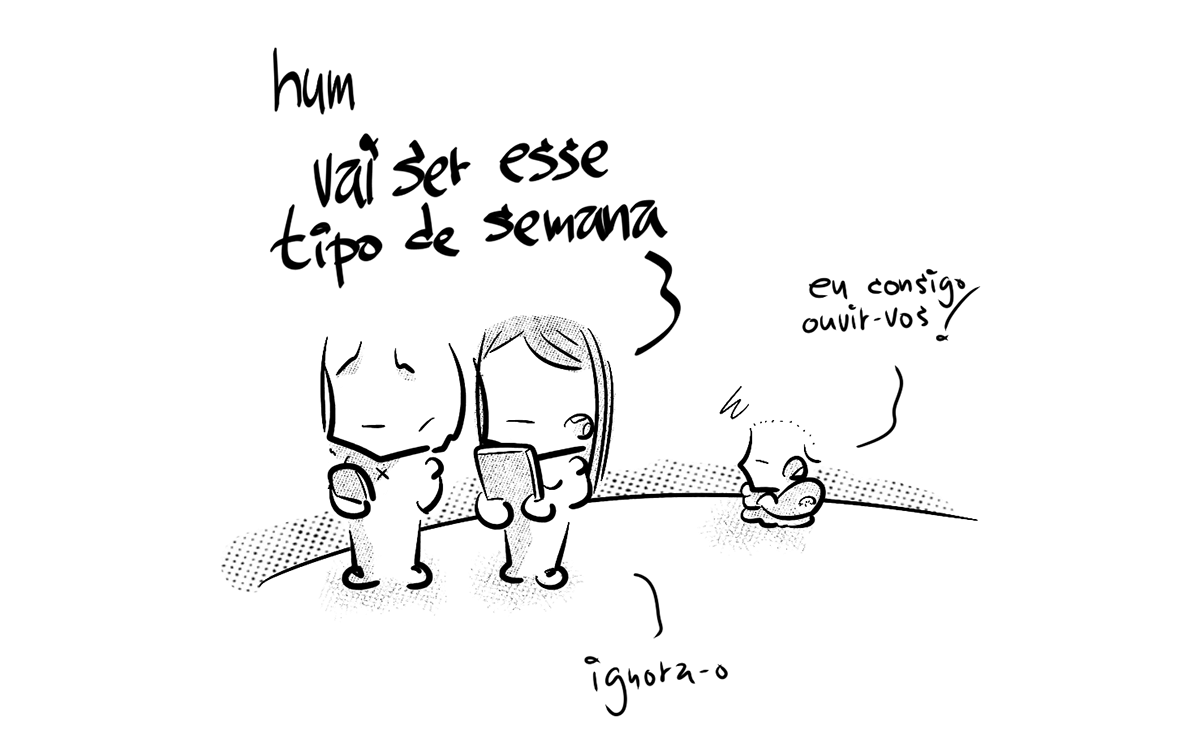 hum
vai ser esse
tipo de semana
eu consigo
ouvir-vos!
ignora-o